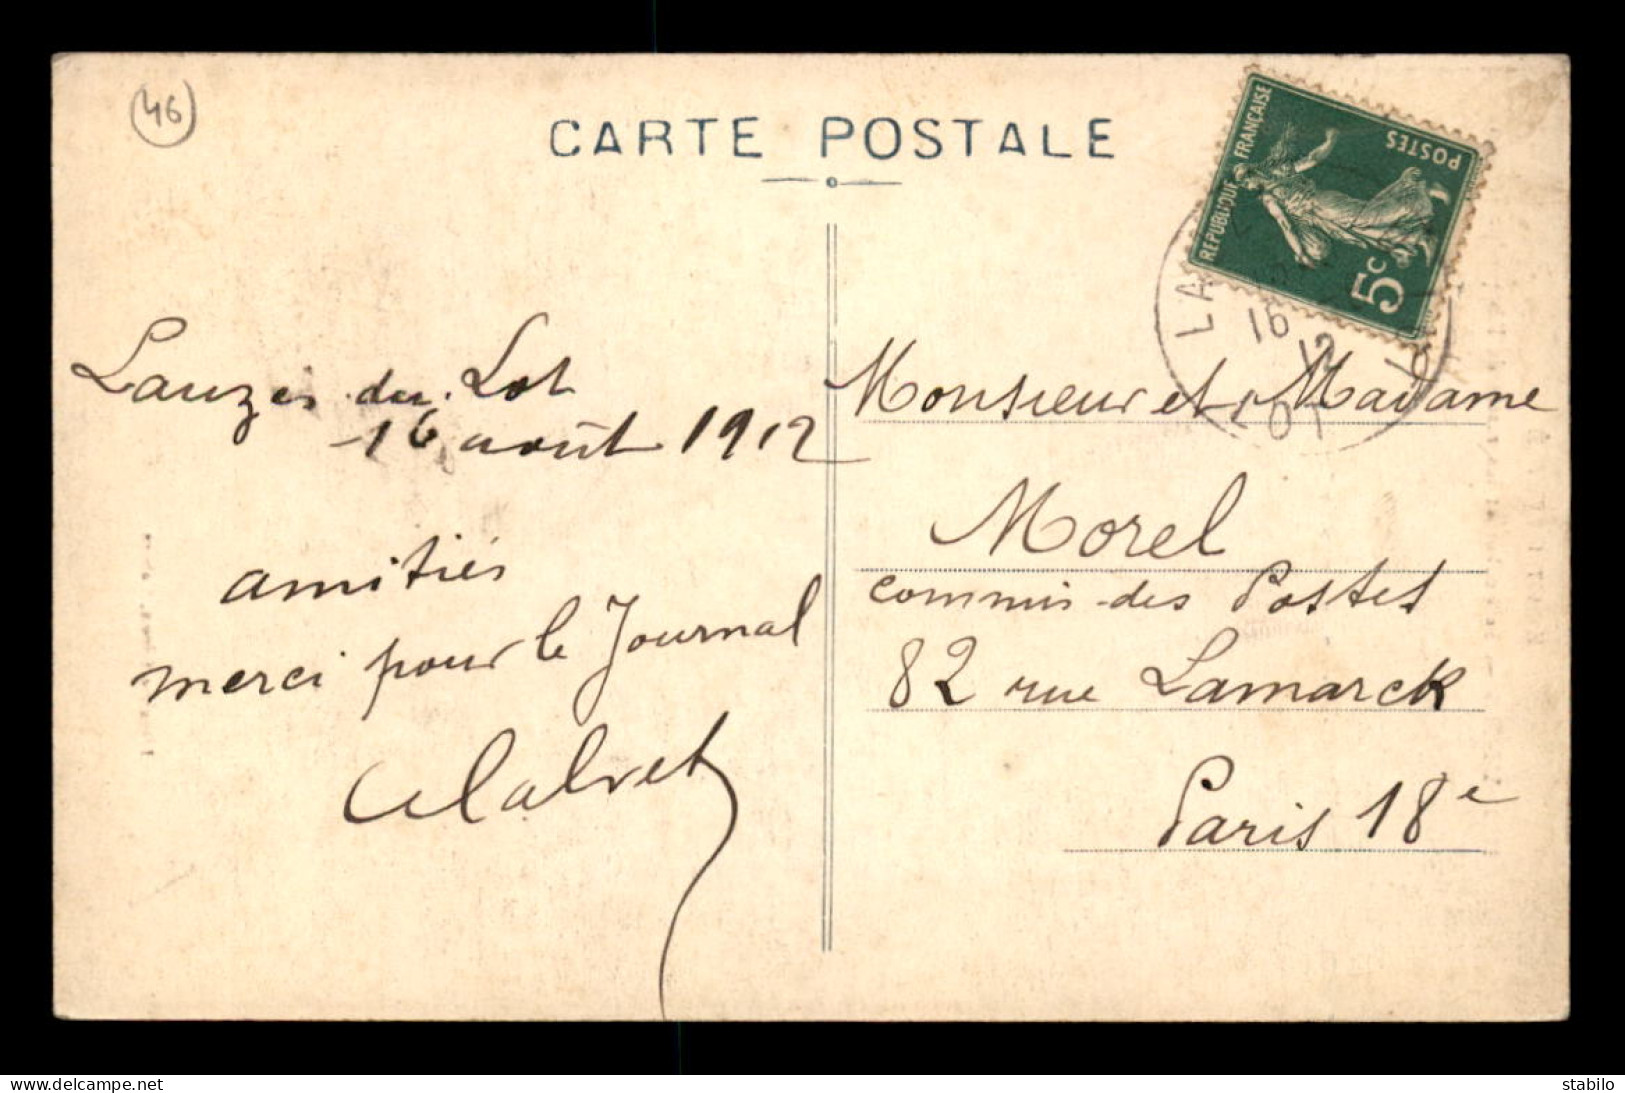 46
CARTE POSTALE
REPUBLIQUE FRANÇAISE
POSTES
5c
LA
16
12
LOT
Lauzès du Lot
16 août 1912
amitiés
merci pour le Journal
Monsieur et Madame
Morel
commis des Postes
82 rue Lamarck
Paris 18e
www.delcampe.net
stabilo